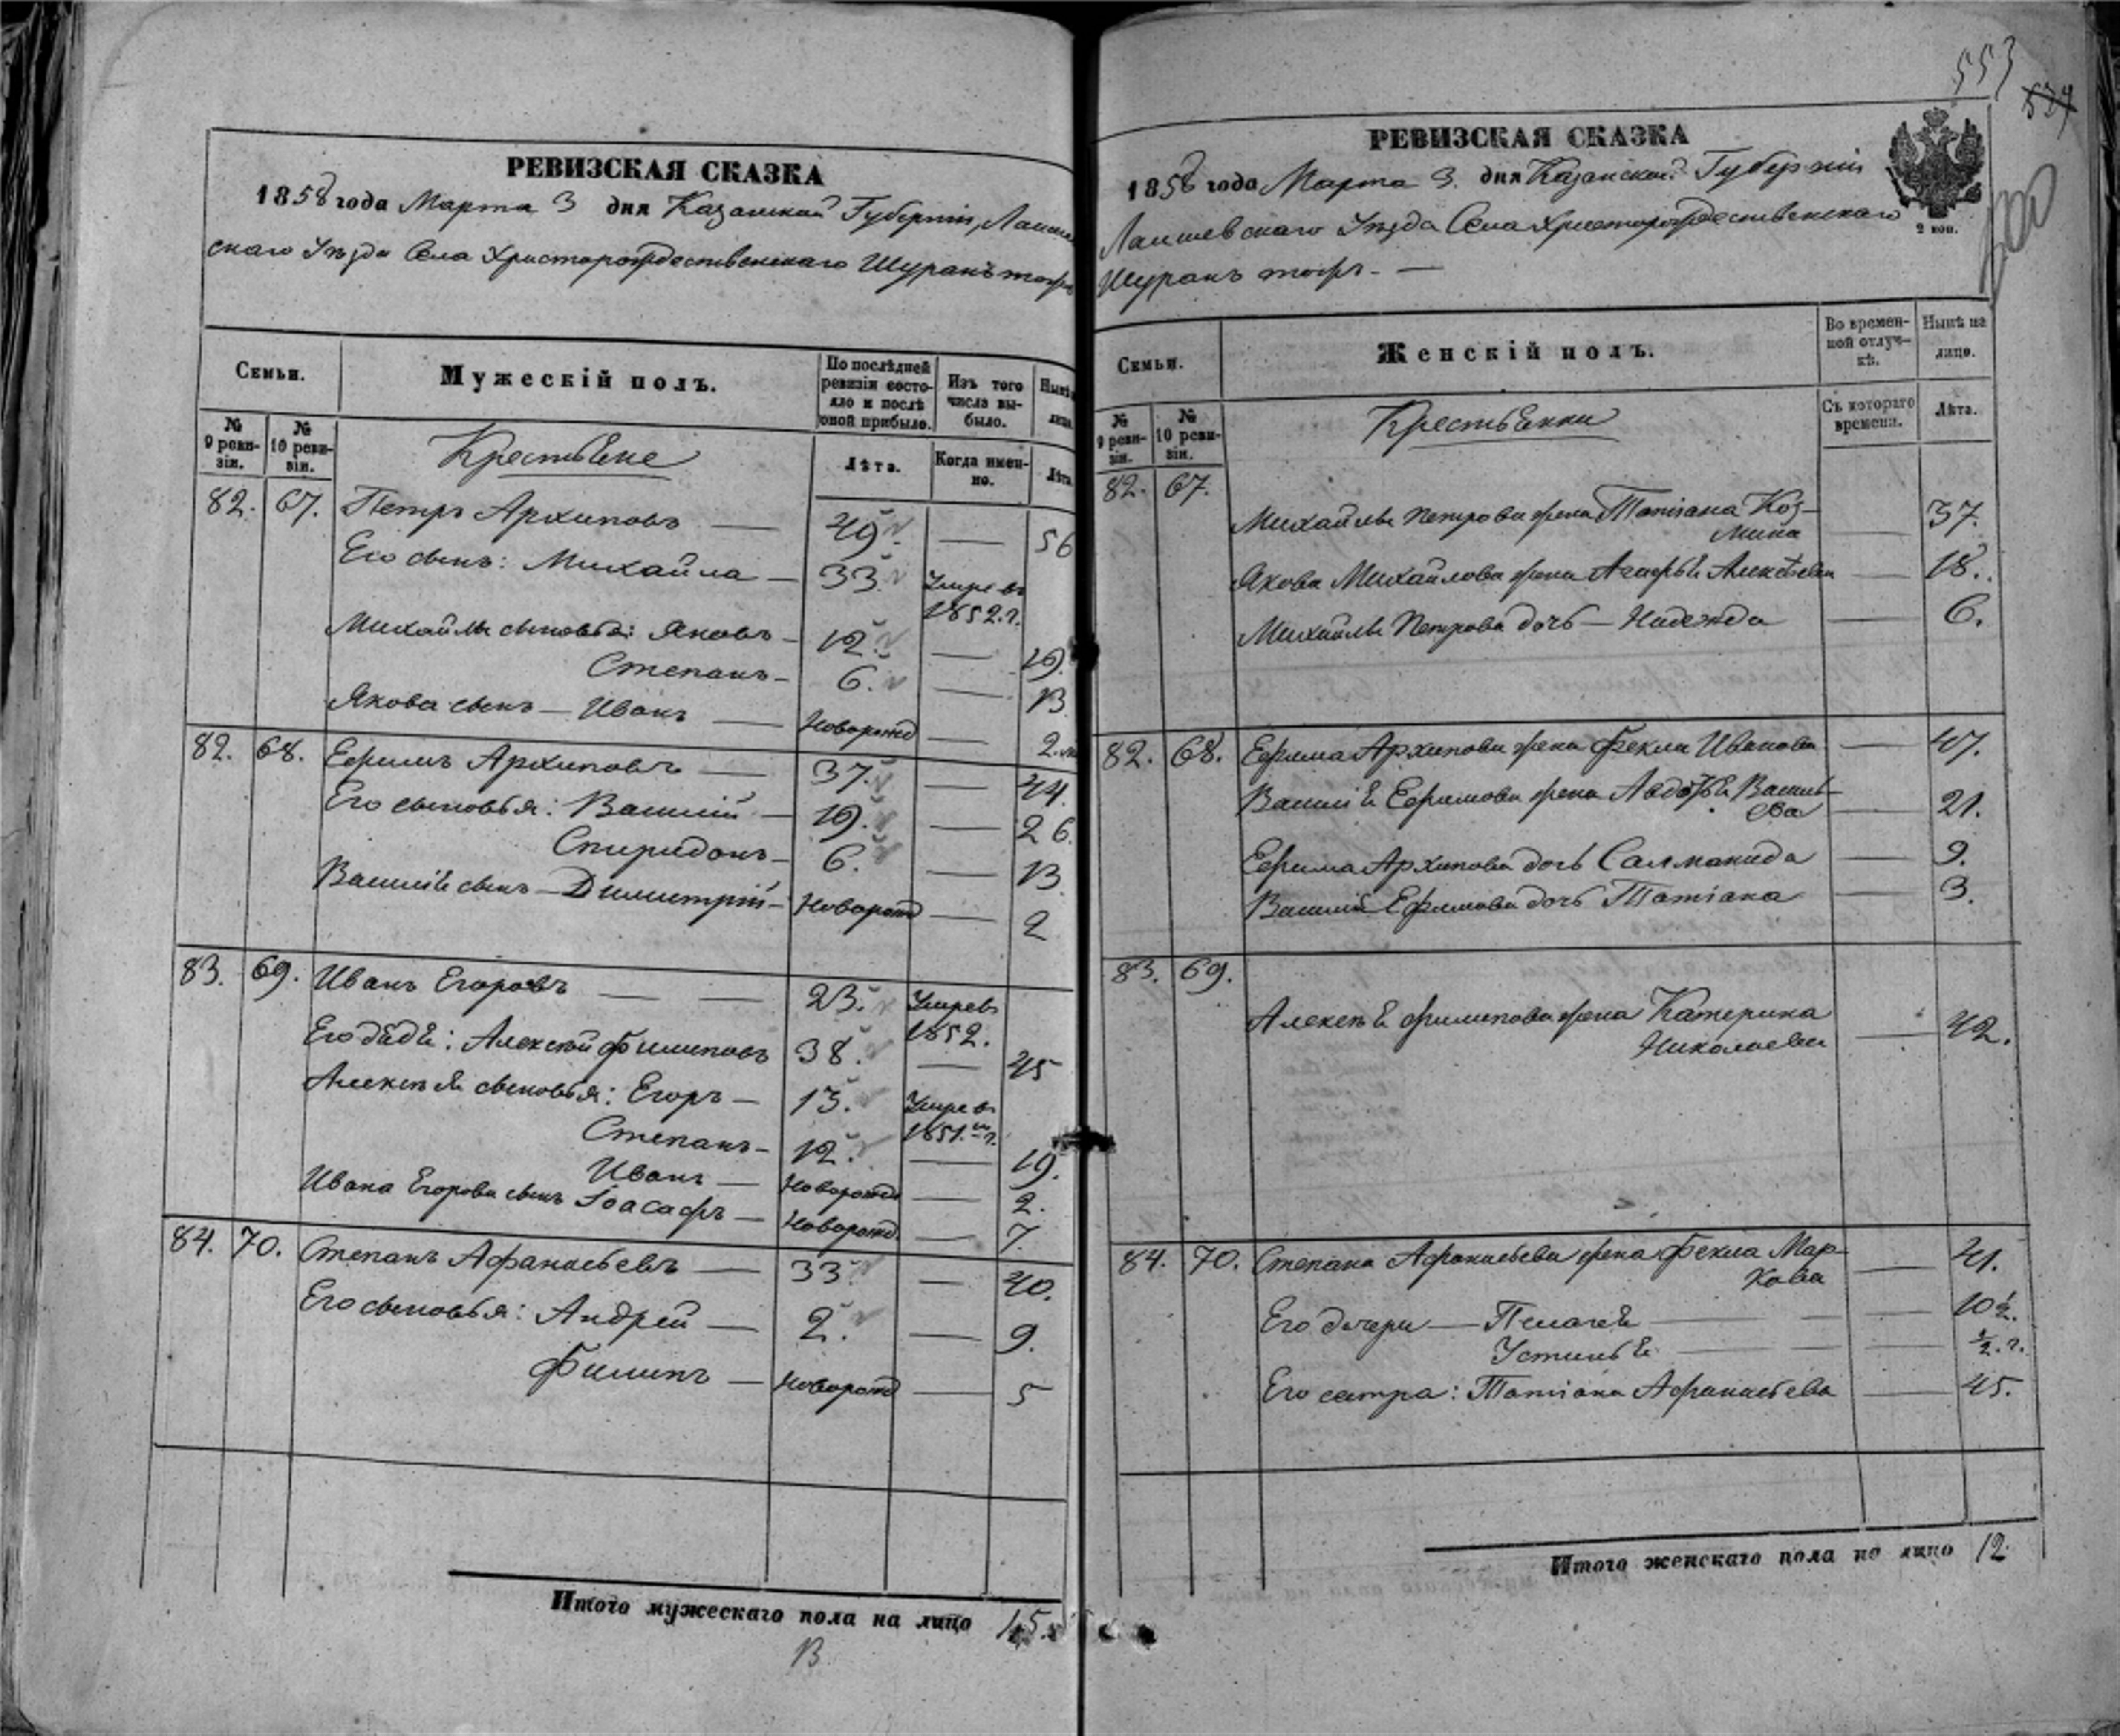 РЕВИЗСКАЯ СКАЗКА
1858 года Марта 3 дня Казанской Губерніи, Лаише
скаго Уѣзда Села Христорождественскаго Шуранъ тожъ
Семьи.
Мужескій полъ.
По послѣдней ревизіи состояло и послѣ оной прибыло.
Изъ того числа выбыло.
Нынѣ
лицо.
№ 9 ревизіи.
№ 10 ревизіи.
Крестьяне
Лѣта.
Когда именно.
Лѣта.
82. 67. Петръ Архиповъ — 49. — 56
Его сынъ: Михайла — 33. Умре въ 1852.г.
Михайлы сыновья: Яковъ — 12. — 19.
Степанъ — 6. — 13.
Якова сынъ — Иванъ — Новорожд — 2.м
82. 68. Ефимъ Архиповъ — 37. — 44.
Его сыновья: Василій — 19. — 26.
Спиридонъ — 6. — 13.
Василія сынъ — Димитрій — Новорожд — 2
83. 69. Иванъ Егоровъ — — 23. Умре въ 1852.
Его дядя: Алексѣй Филиповъ 38. — 45
Алексѣя сыновья: Егоръ — 13. Умре въ 1851.мъ г.
Степанъ — 12. — 19.
Иванъ — Новорожд — 2.
Ивана Егорова сынъ Іоасафъ — Новорожд. — 7.
84. 70. Степанъ Афанасьевъ — 33 — 40.
Его сыновья: Андрей — 2. — 9.
Филипъ — Новорожд — 5
Итого мужескаго пола на лицо 15.
13
553
537
РЕВИЗСКАЯ СКАЗКА
1858 года Марта 3. дня Казанской Губерніи
Лаишевскаго Уѣзда Села Христорождественскаго
Шуранъ тожъ. —
2 коп.
Семьи.
Женскій полъ.
Во временной отлучкѣ.
Нынѣ на лицо.
№ 9 ревизіи.
№ 10 ревизіи.
Крестьянки
Съ котораго времени.
Лѣта.
82. 67.
Михайлы Петрова жена Татіана Коз-
мина — 37.
Якова Михайлова жена Агафья Алексѣева — 18.
Михайлы Петрова дочь — Надежда — 6.
82. 68. Ефима Архипова жена Фекла Иванова — 47.
Василія Ефимова жена Авдотья Василь-
ева — 21.
Ефима Архипова дочь Саломанида — 9.
Василія Ефимова дочь Татіана — 3.
83. 69.
Алексѣя Филипова жена Катерина
Николаева — 42.
84. 70. Степана Афанасьева жена Фекла Мар-
кова — 41.
Его дочери — Пелагея — 10½.
Устинья — ½.г.
Его сестра: Татіана Афанасьева — 45.
Итого женскаго пола на лицо 12